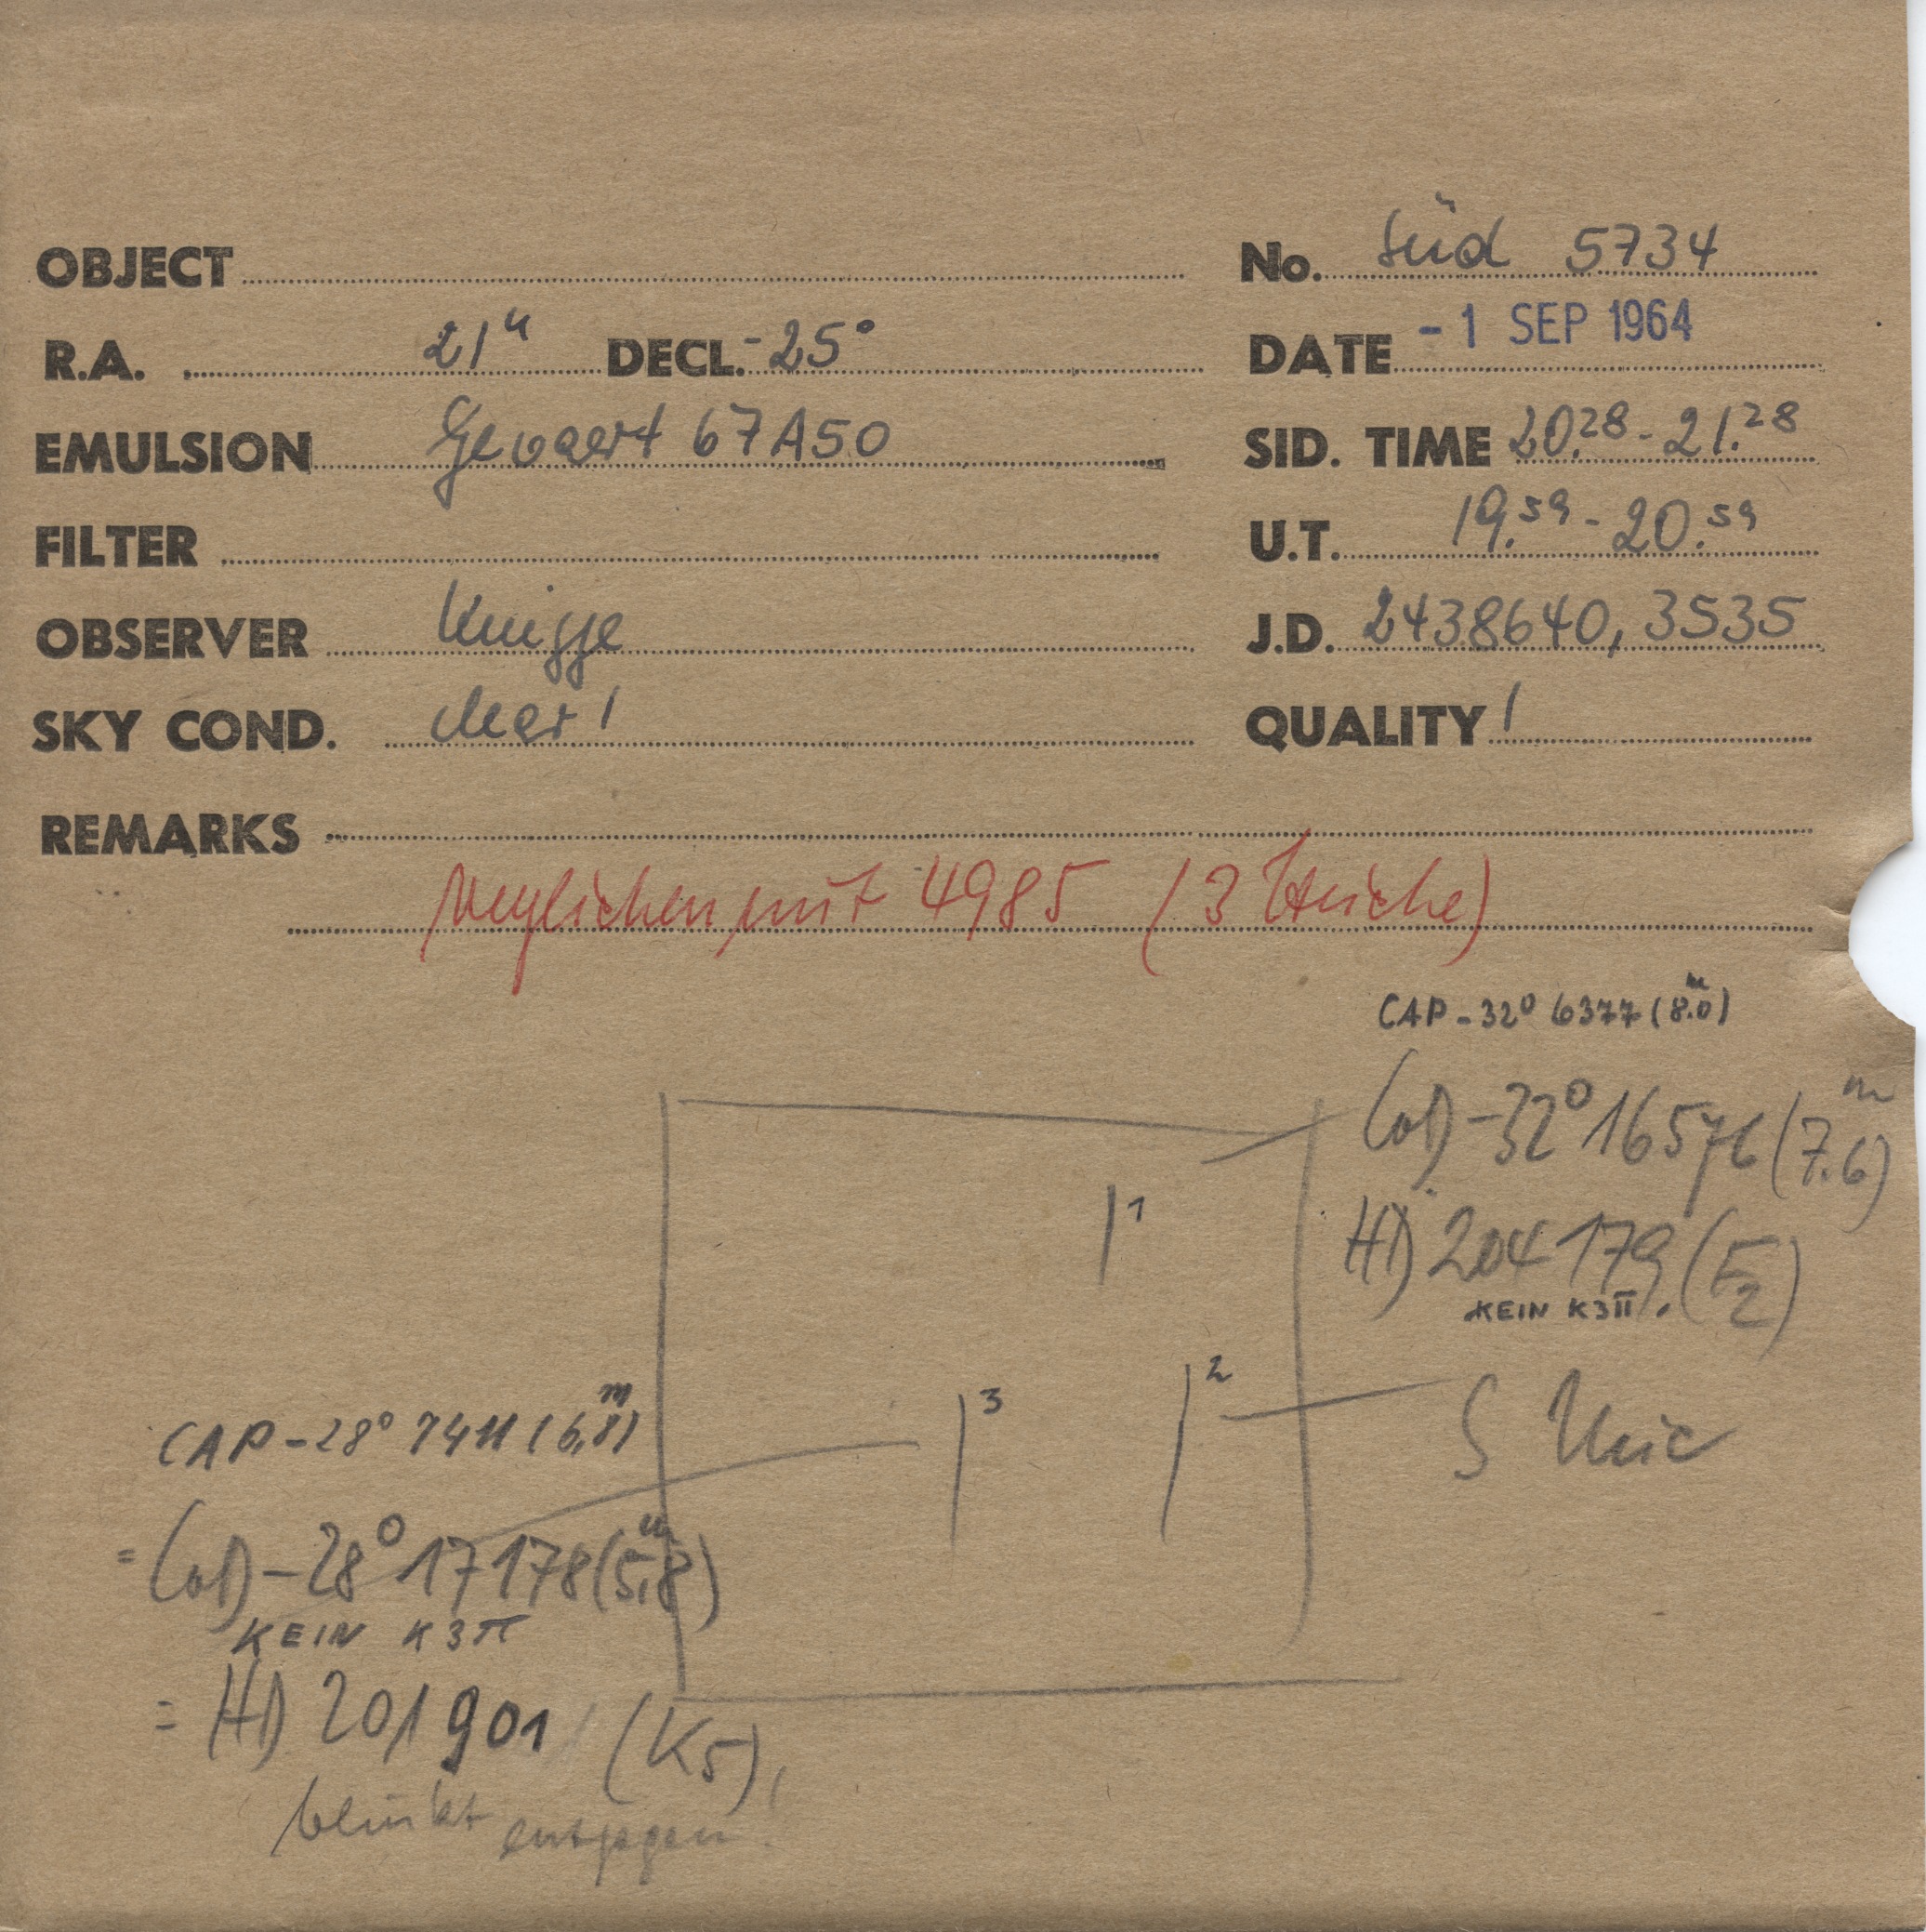 OBJECT
No. Süd 5734
R.A. 21h DECL. -25°
DATE -1 SEP 1964
EMULSION Gevaert 67A50
SID. TIME 20.28 - 21.28
FILTER
U.T. 19.59 - 20.59
OBSERVER Knigge
J.D. 2438640,3535
SKY COND. clear 1
QUALITY 1
REMARKS
verglichen mit 4985 (3 Striche)
CAP -32° 6377 (8.0m)
CoD -32° 16576 (7.6m)
HD 204179 (F2)
KEIN K3Π.
1
2
3
S Mic
CAP -28° 7411 (6,8m)
= CoD -28° 17178 (5,8m)
KEIN K3π
= HD 201901 (K5),
blinkt entgegen.